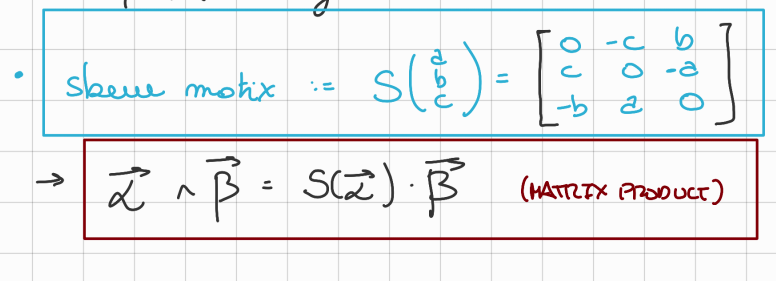 • skew matrix := S(a b c) = [0 -c b
c 0 -a
-b a 0]
→ α⃗ ∧ β⃗ = S(α⃗) · β⃗ (MATRIX PRODUCT)